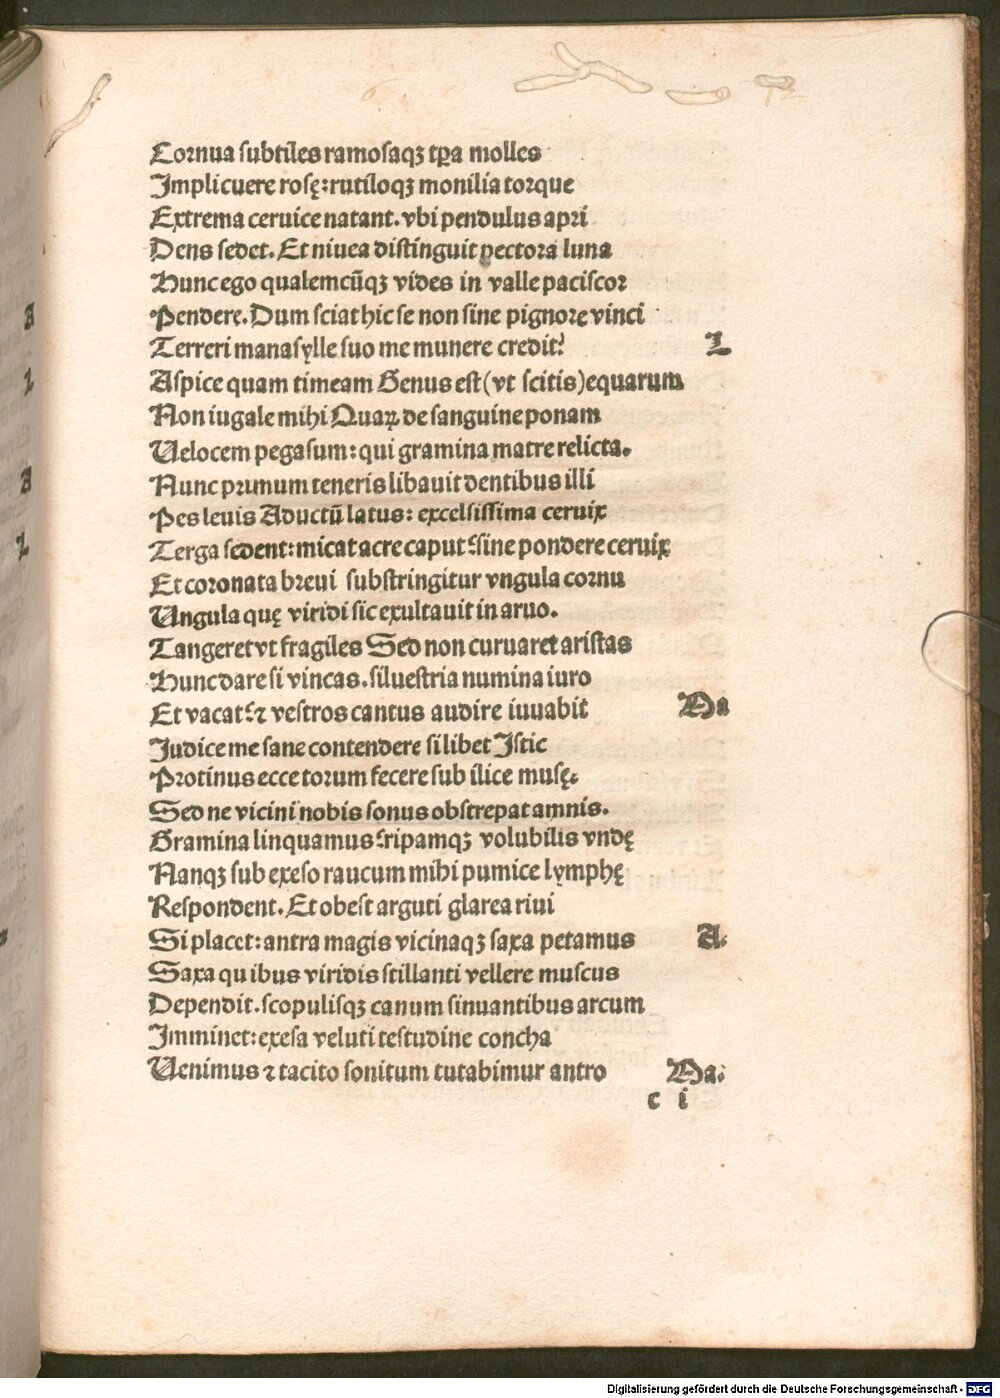 Cornua subtiles ramosaqꝫ tꝑa molles
Implicuere rosę: rutiloqꝫ monilia torque
Extrema ceruice natant. vbi pendulus apri
Dens sedet. Et niuea distinguit pectora luna
Hunc ego qualemcūqꝫ vides in valle paciscor
Pendere. Dum sciat hic se non sine pignore vinci
Terreri manasylle suo me munere credit? L
Aspice quam timeam Genus est (vt scitis) equarum
Non iugale mihi Quaꝝ de sanguine ponam
Uelocem pegasum: qui gramina matre relicta.
Nunc primum teneris libauit dentibus illi
Pes leuis Aductū latus: excelsissima ceruix
Terga sedent: micat acre caput: sine pondere ceruix
Et coronata breui substringitur vngula cornu
Ungula quę viridi sic exultauit in aruo.
Tangeret vt fragiles Sed non curuaret aristas
Hunc dare si vincas. siluestria numina iuro
Et vacat: ⁊ vestros cantus audire iuuabit Da
Judice me sane contendere si libet Istic
Protinus ecce torum fecere sub ilice musę.
Sed ne vicini nobis sonus obstrepat amnis.
Gramina linquamus: ripamqꝫ volubilis vndę
Nanqꝫ sub exeso raucum mihi pumice lymphę
Respondent. Et obest arguti glarea riui
Si placet: antra magis vicinaqꝫ saxa petamus A.
Saxa qu ibus viridis stillanti vellere muscus
Dependit. scopulisqꝫ canum sinuantibus arcum
Imminet: exesa veluti testudine concha
Uenimus ⁊ tacito sonitum tutabimur antro Da.
c i
Digitalisierung gefördert durch die Deutsche Forschungsgemeinschaft - DFG